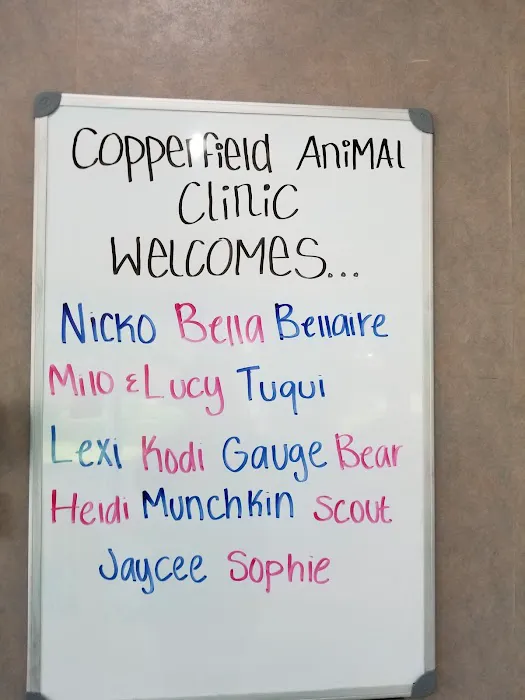 Copperfield AniMAL
CliNiC
WELCOMES...
Nicko Bella Bellaire
Milo & Lucy Tuqui
Lexi Kodi Gauge Bear
Heidi Munchkin Scout
Jaycee Sophie